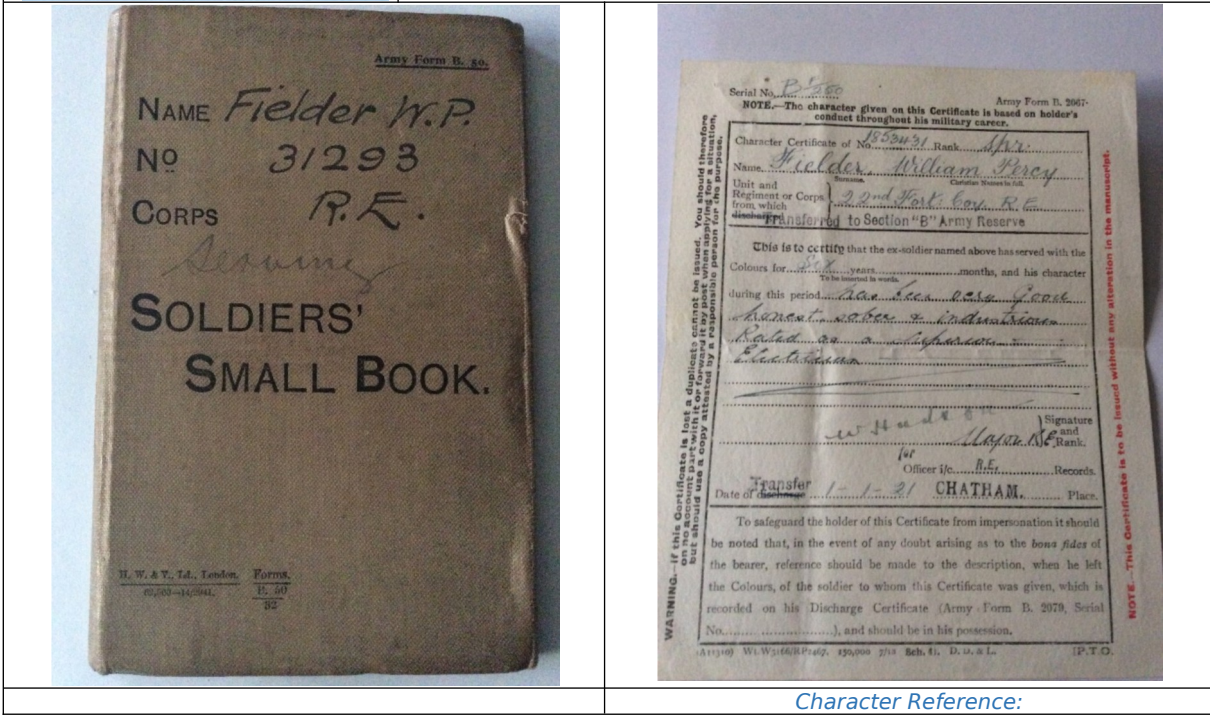 Army Form B. 50.
NAME Fielder W.P.
No 31293
CORPS R.E.
Serving
SOLDIERS'
SMALL BOOK.
H. W. & V., Ld., London.
Forms.
B. 50
32
Serial No.
Army Form B. 2067.
NOTE.—The character given on this Certificate is based on holder's
conduct throughout his military career.
Character Certificate of No. 1853431 Rank Spr.
Name. Fielder, William Percy
Surname. Christian Names in full.
Unit and
Regiment or Corps
from which
22nd Fort: Coy. R.E.
discharged Transferred to Section "B" Army Reserve
This is to certify that the ex-soldier named above has served with the
Colours for six years months, and his character
To be inserted in words.
during this period has been very Good
honest, sober & industrious
Rated as a Superior
Electrician
W Hudson
Signature
and
Rank.
Major R.E.
for
Officer i/c. R.E. Records.
Date of discharge Transfer 1-1-21 CHATHAM. Place.
To safeguard the holder of this Certificate from impersonation it should
be noted that, in the event of any doubt arising as to the bona fides of
the bearer, reference should be made to the description, when he left
the Colours, of the soldier to whom this Certificate was given, which is
recorded on his Discharge Certificate (Army Form B. 2079, Serial
No. ), and should be in his possession.
250,000 7/18 Sch. 41. D. D. & L. [P.T.O.
WARNING.—If this Certificate is lost a duplicate cannot be issued. You should therefore
on no account part with it or forward it by post when applying for a situation,
but should use a copy attested by a responsible person for the purpose.
NOTE.—This Certificate is to be issued without any alteration in the manuscript.
Character Reference: